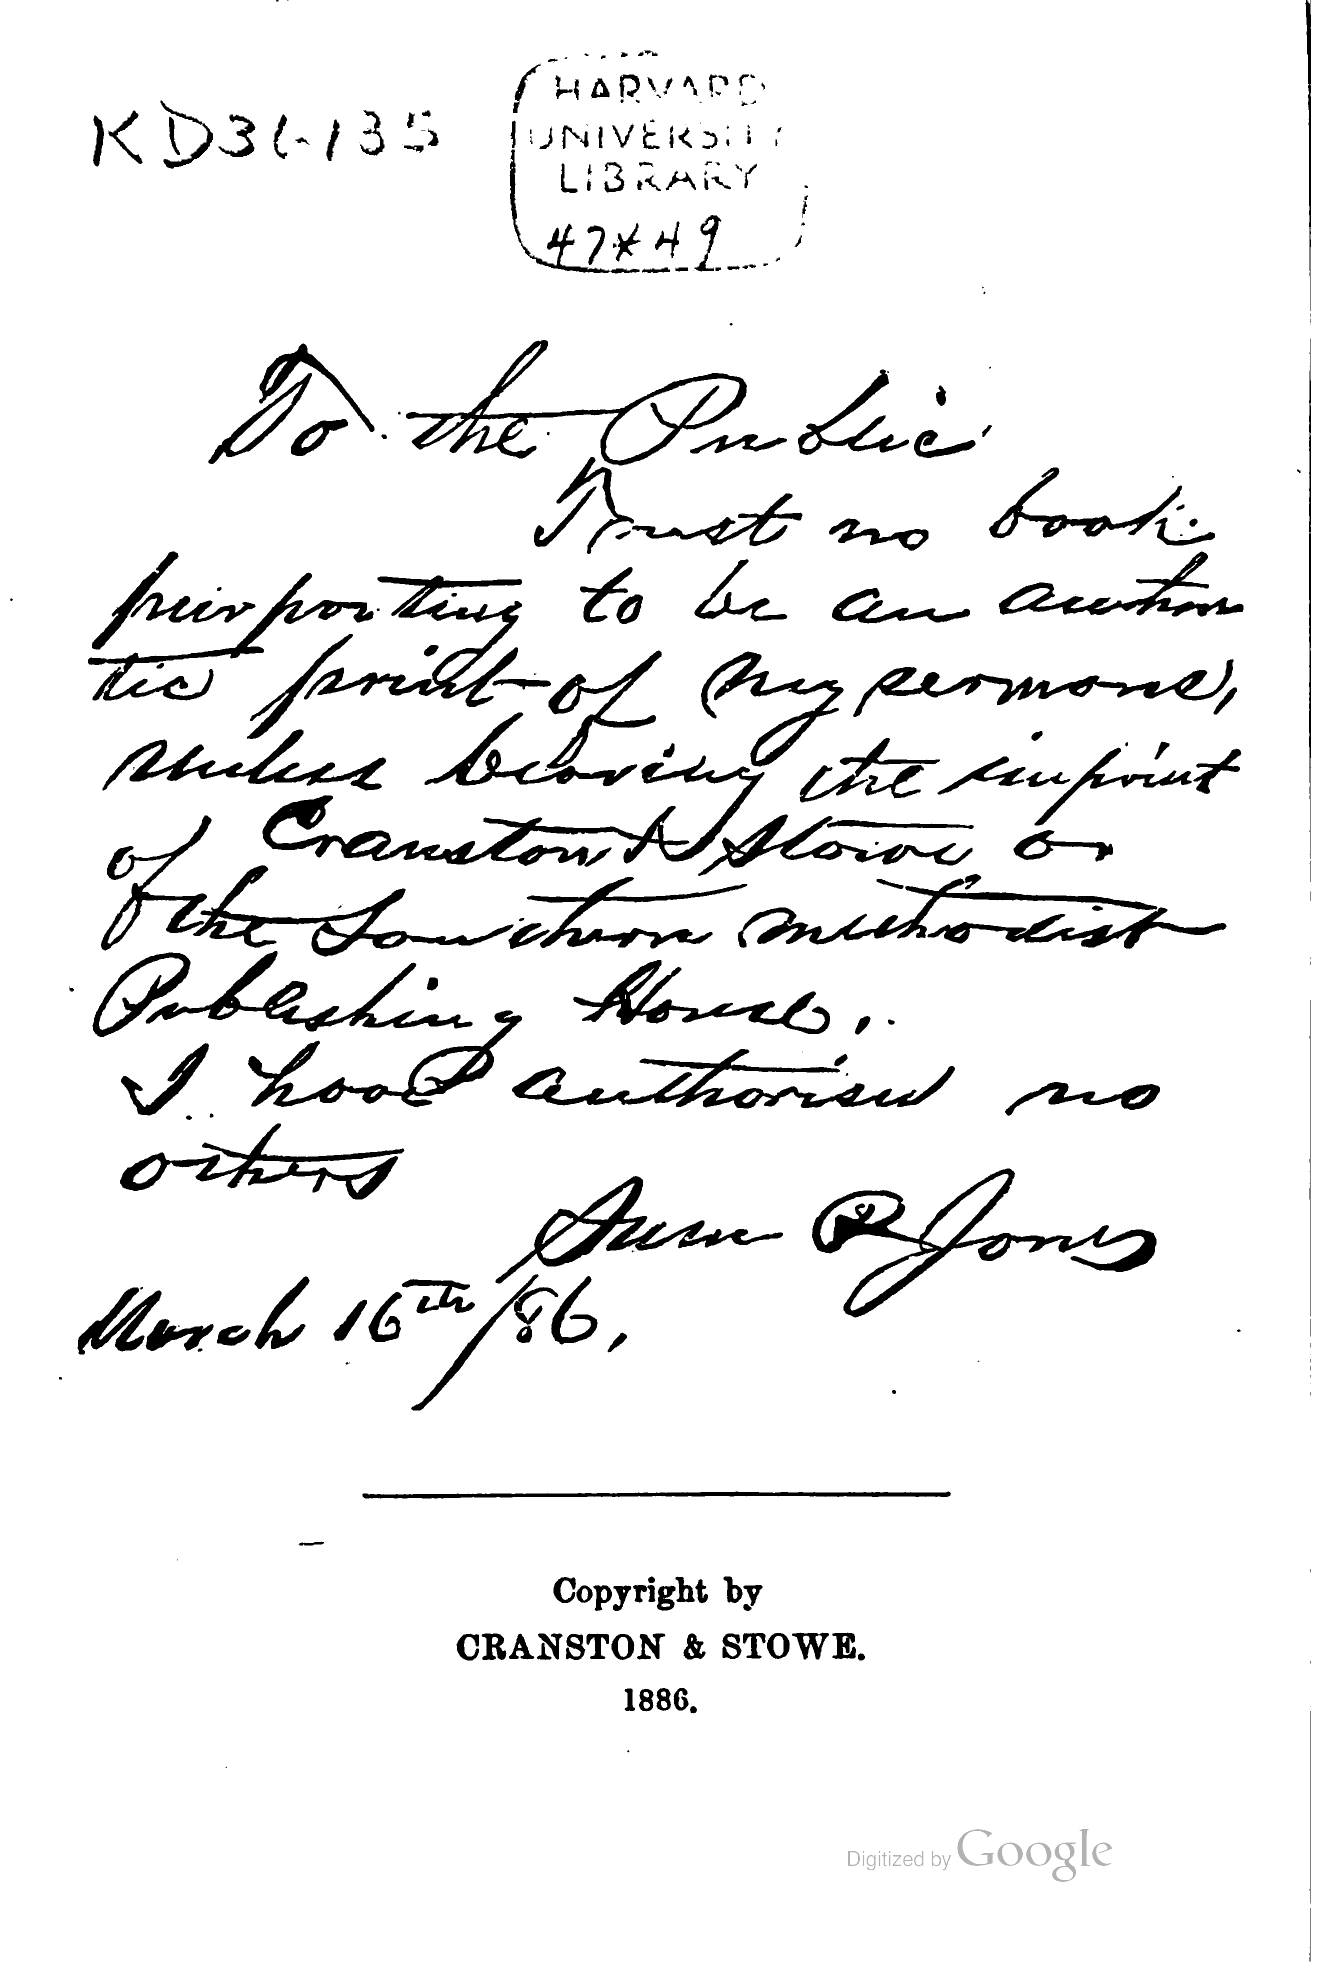 KD31-135
HARVARD
UNIVERSITY
LIBRARY
47*49
To the Public
Trust no book
purporting to be an authen
tic print of my sermons,
unless bearing the imprint
of Cranston & Stowe or
of the Southern Methodist
Publishing House.
I have authorised no
others
Sam P Jones
March 16th/86.
Copyright by
CRANSTON & STOWE.
1886.
Digitized by Google